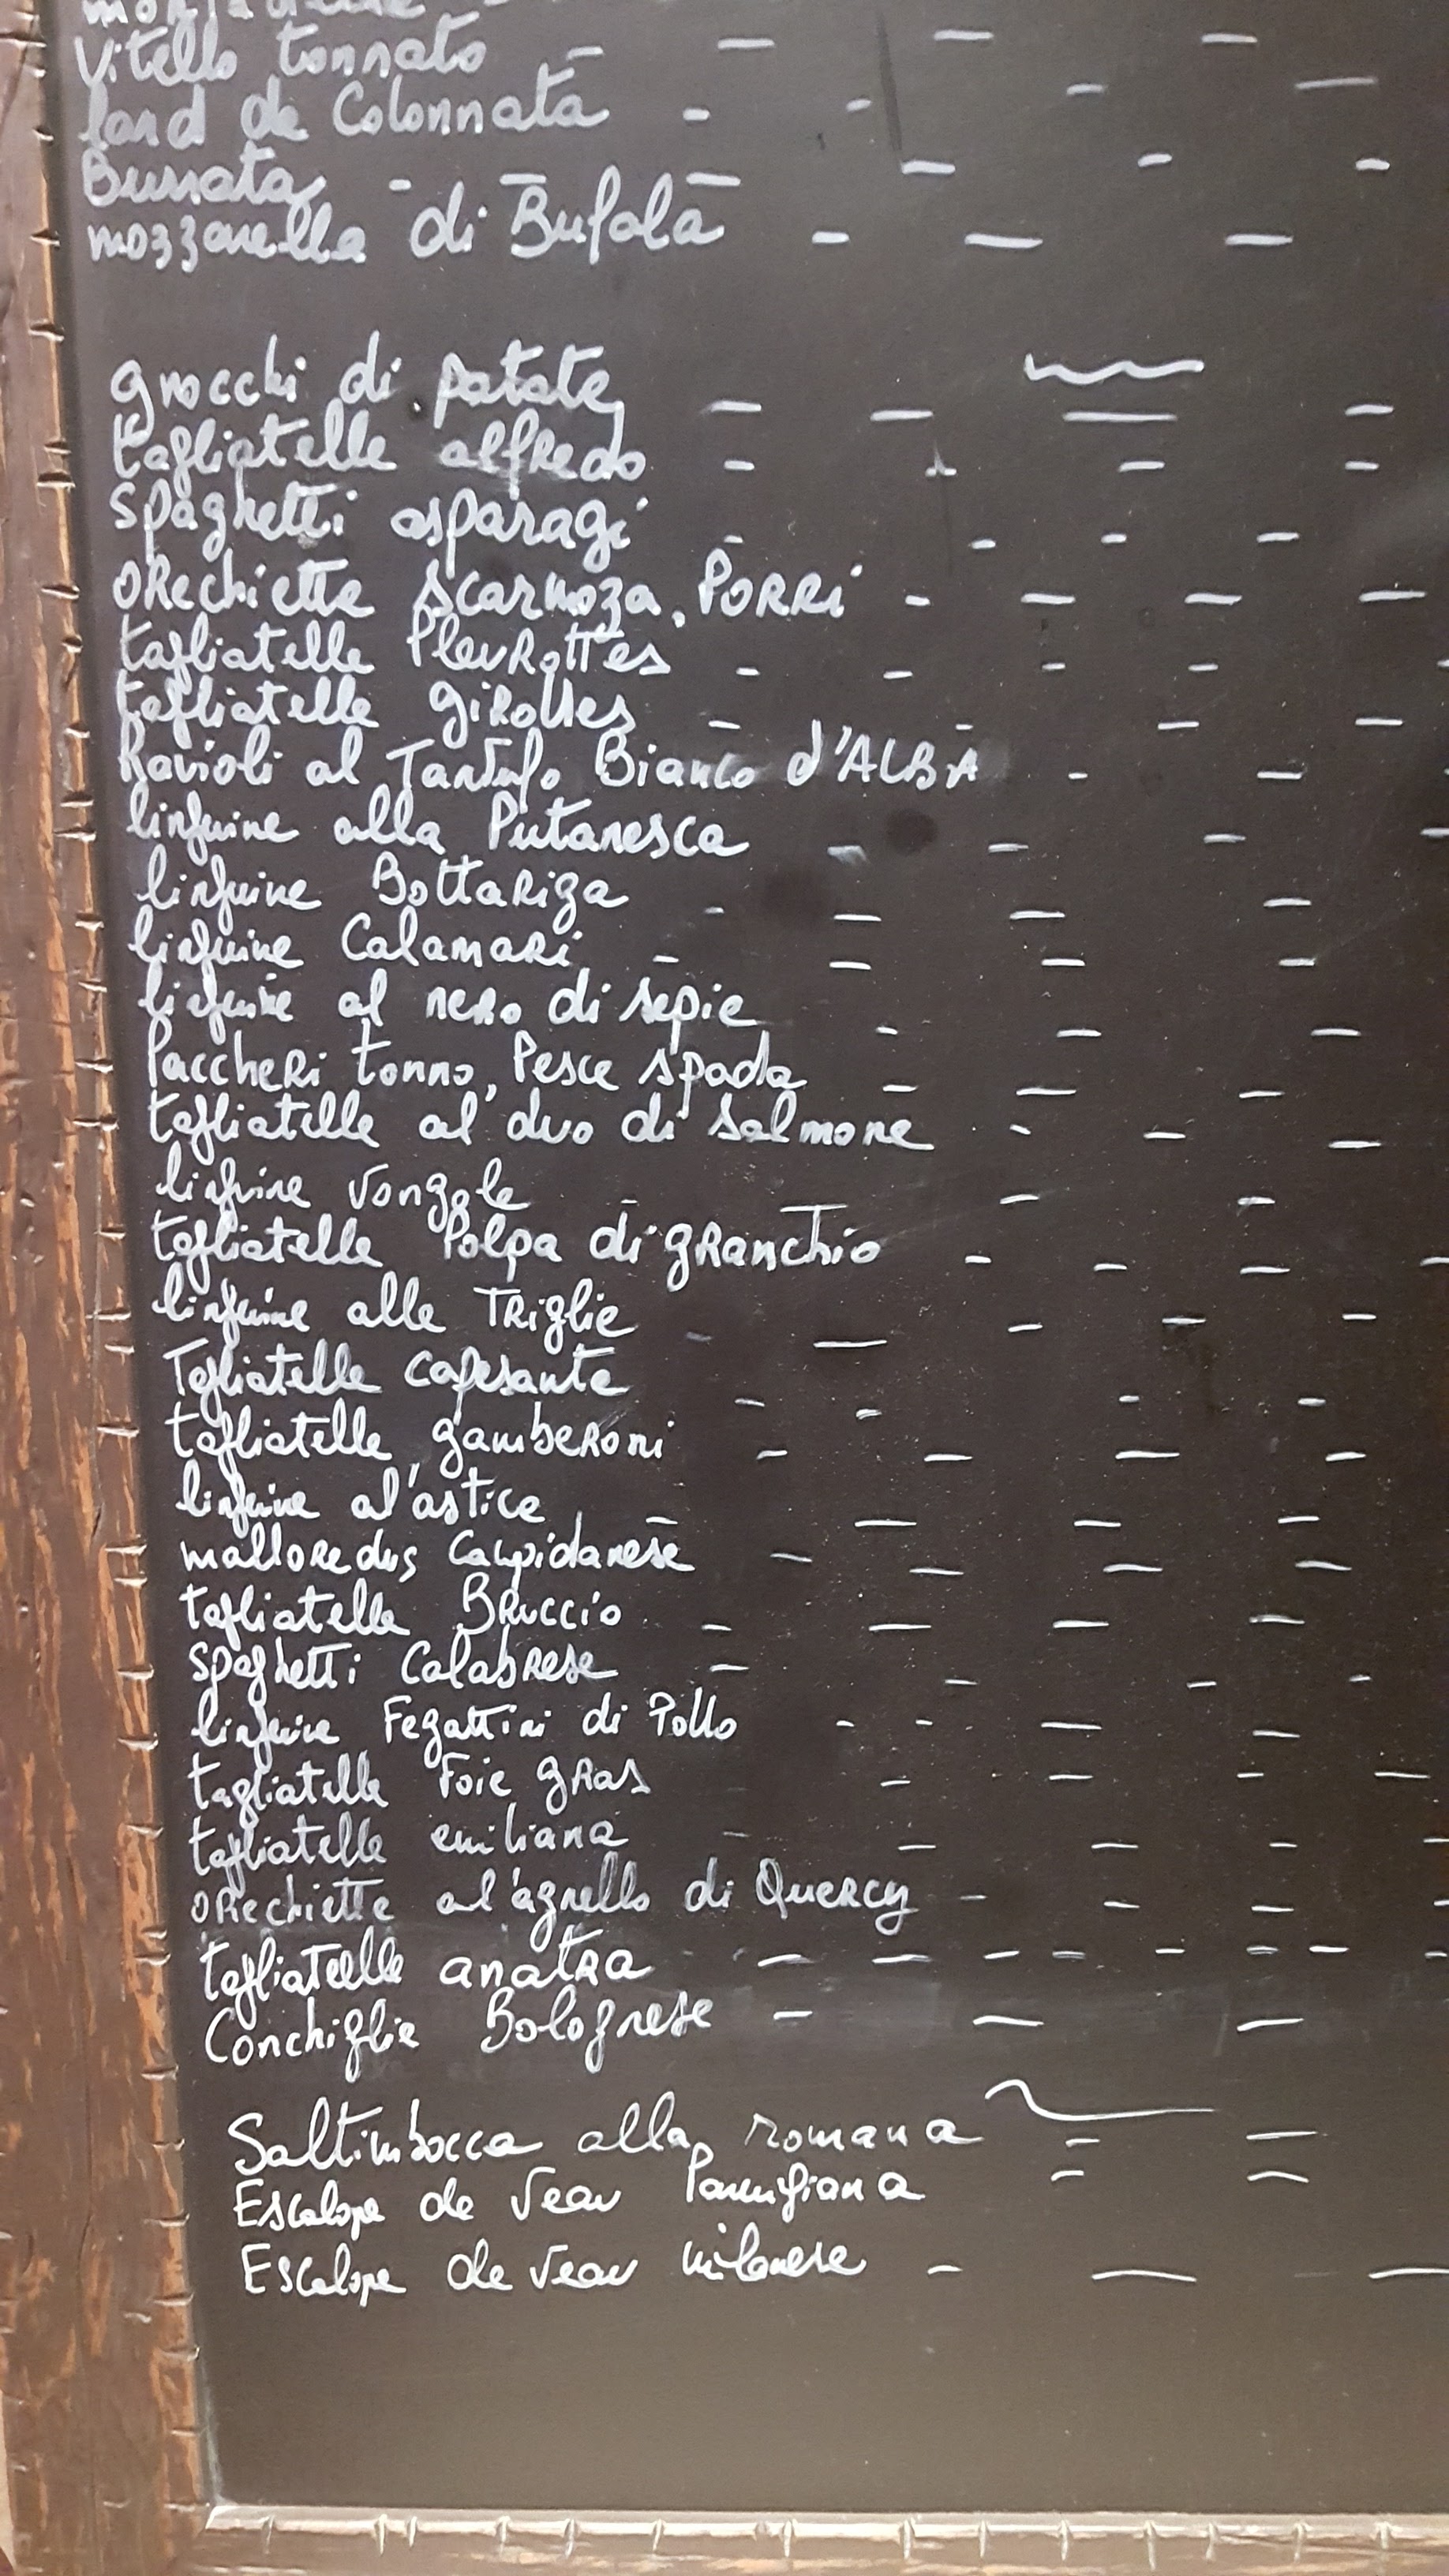 Vitello tonnato - - - -
lard de Colonnata - - - -
Burrata - - - - - -
mozzarella di Bufala - - -
gnocchi di patate - - - -
tagliatelle alfredo - - - -
spaghetti asparagi - - - -
orechiette scarmoza, PORRi - - - -
tagliatelle Pleurottes - - - - -
tagliatelle girolles - - - -
Ravioli al Tartufo Bianco d'ALBA - -
linguine alla Putanesca - - - -
linguine Bottariga - - - -
linguine Calamari - - - -
linguine al nero di sepie - - -
Paccheri tonno, Pesce spada - - -
tagliatelle al duo di salmone - - -
linguine vongole - - -
tagliatelle Polpa di granchio - - - -
linguine alle Triglie - - - - -
Tagliatelle capesante - - - -
tagliatelle gamberoni - - - -
linguine al'astice - - - -
malloredus Campidanese - - - -
tagliatelle Bruccio - - - -
spaghetti Calabrese - - - -
linguine Fegattini di Pollo - - - -
tagliatelle Foie gras - - - - -
tagliatelle emiliana - - - - -
orechiette al'agnello di Quercy - - - -
tagliatelle anatra - - - - - - - -
Conchiglie Bolognese - - -
Saltimbocca alla romana - -
Escalope de veau Parmigiana - -
Escalope de veau milanese - - -